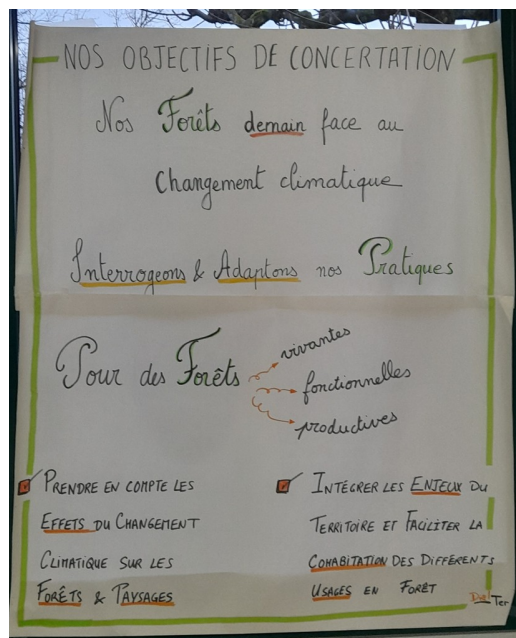 NOS OBJECTIFS DE CONCERTATION
Nos Forêts demain face au
Changement climatique
Interrogeons & Adaptons nos Pratiques
Pour des Forêts
vivantes
fonctionnelles
productives
PRENDRE EN COMPTE LES
EFFETS DU CHANGEMENT
CLIMATIQUE SUR LES
FORÊTS & PAYSAGES
INTÉGRER LES ENJEUX DU
TERRITOIRE ET FACILITER LA
COHABITATION DES DIFFÉRENTS
USAGES EN FORÊT